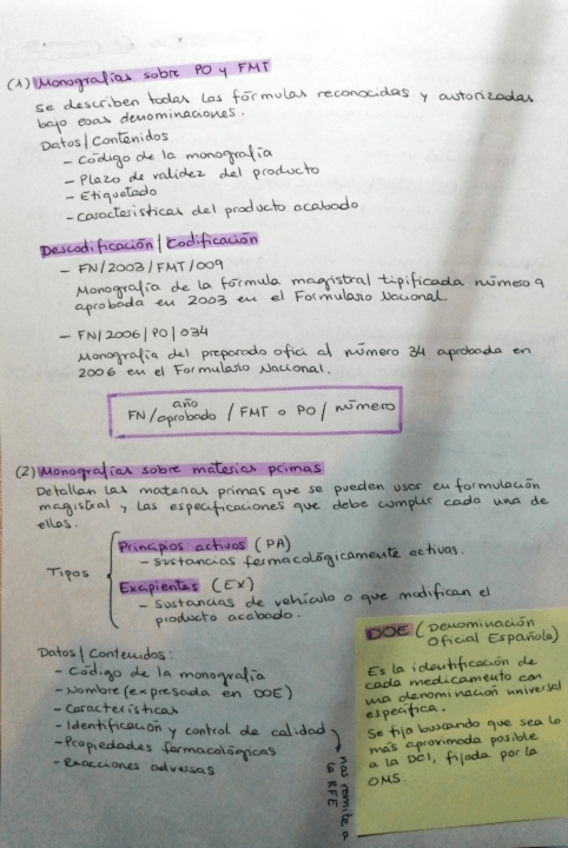 (1) Monografías sobre PO y FMT
Se describen todas las fórmulas reconocidas y autorizadas
bajo esas denominaciones.
Datos | Contenidos
- Código de la monografía
- Plazo de validez del producto
- Etiquetado
- Características del producto acabado
Descodificación | Codificación
- FN/2003/FMT/009
Monografía de la fórmula magistral tipificada número 9
aprobada en 2003 en el Formulario Nacional.
- FN/2006/PO/034
Monografía del preparado oficial número 34 aprobada en
2006 en el Formulario Nacional.
año
FN/aprobado / FMT o PO / número
(2) Monografías sobre materias primas
Detallan las materias primas que se pueden usar en formulación
magistral y las especificaciones que debe cumplir cada una de
ellas.
Tipos
Principios activos (PA)
- Sustancias farmacológicamente activas.
Excipientes (EX)
- Sustancias de vehículo o que modifican el
producto acabado.
Datos | Contenidos:
- Código de la monografía
- Nombre (expresada en DOE)
- Características
- Identificación y control de calidad
- Propiedades farmacológicas
- Reacciones adversas
nos remite a
la RFE
DOE (Denominación
Oficial Española)
Es la identificación de
cada medicamento con
una denominación universal
específica.
Se fija buscando que sea lo
más aproximada posible
a la DCI, fijada por la
OMS.